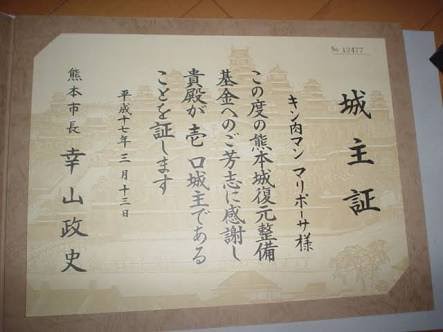 No 12477
城主証
キン肉マン マリポーサ様
この度の熊本城復元整備
基金へのご芳志に感謝し
貴殿が壱口城主である
ことを証します
平成十七年三月十三日
熊本市長 幸山政史